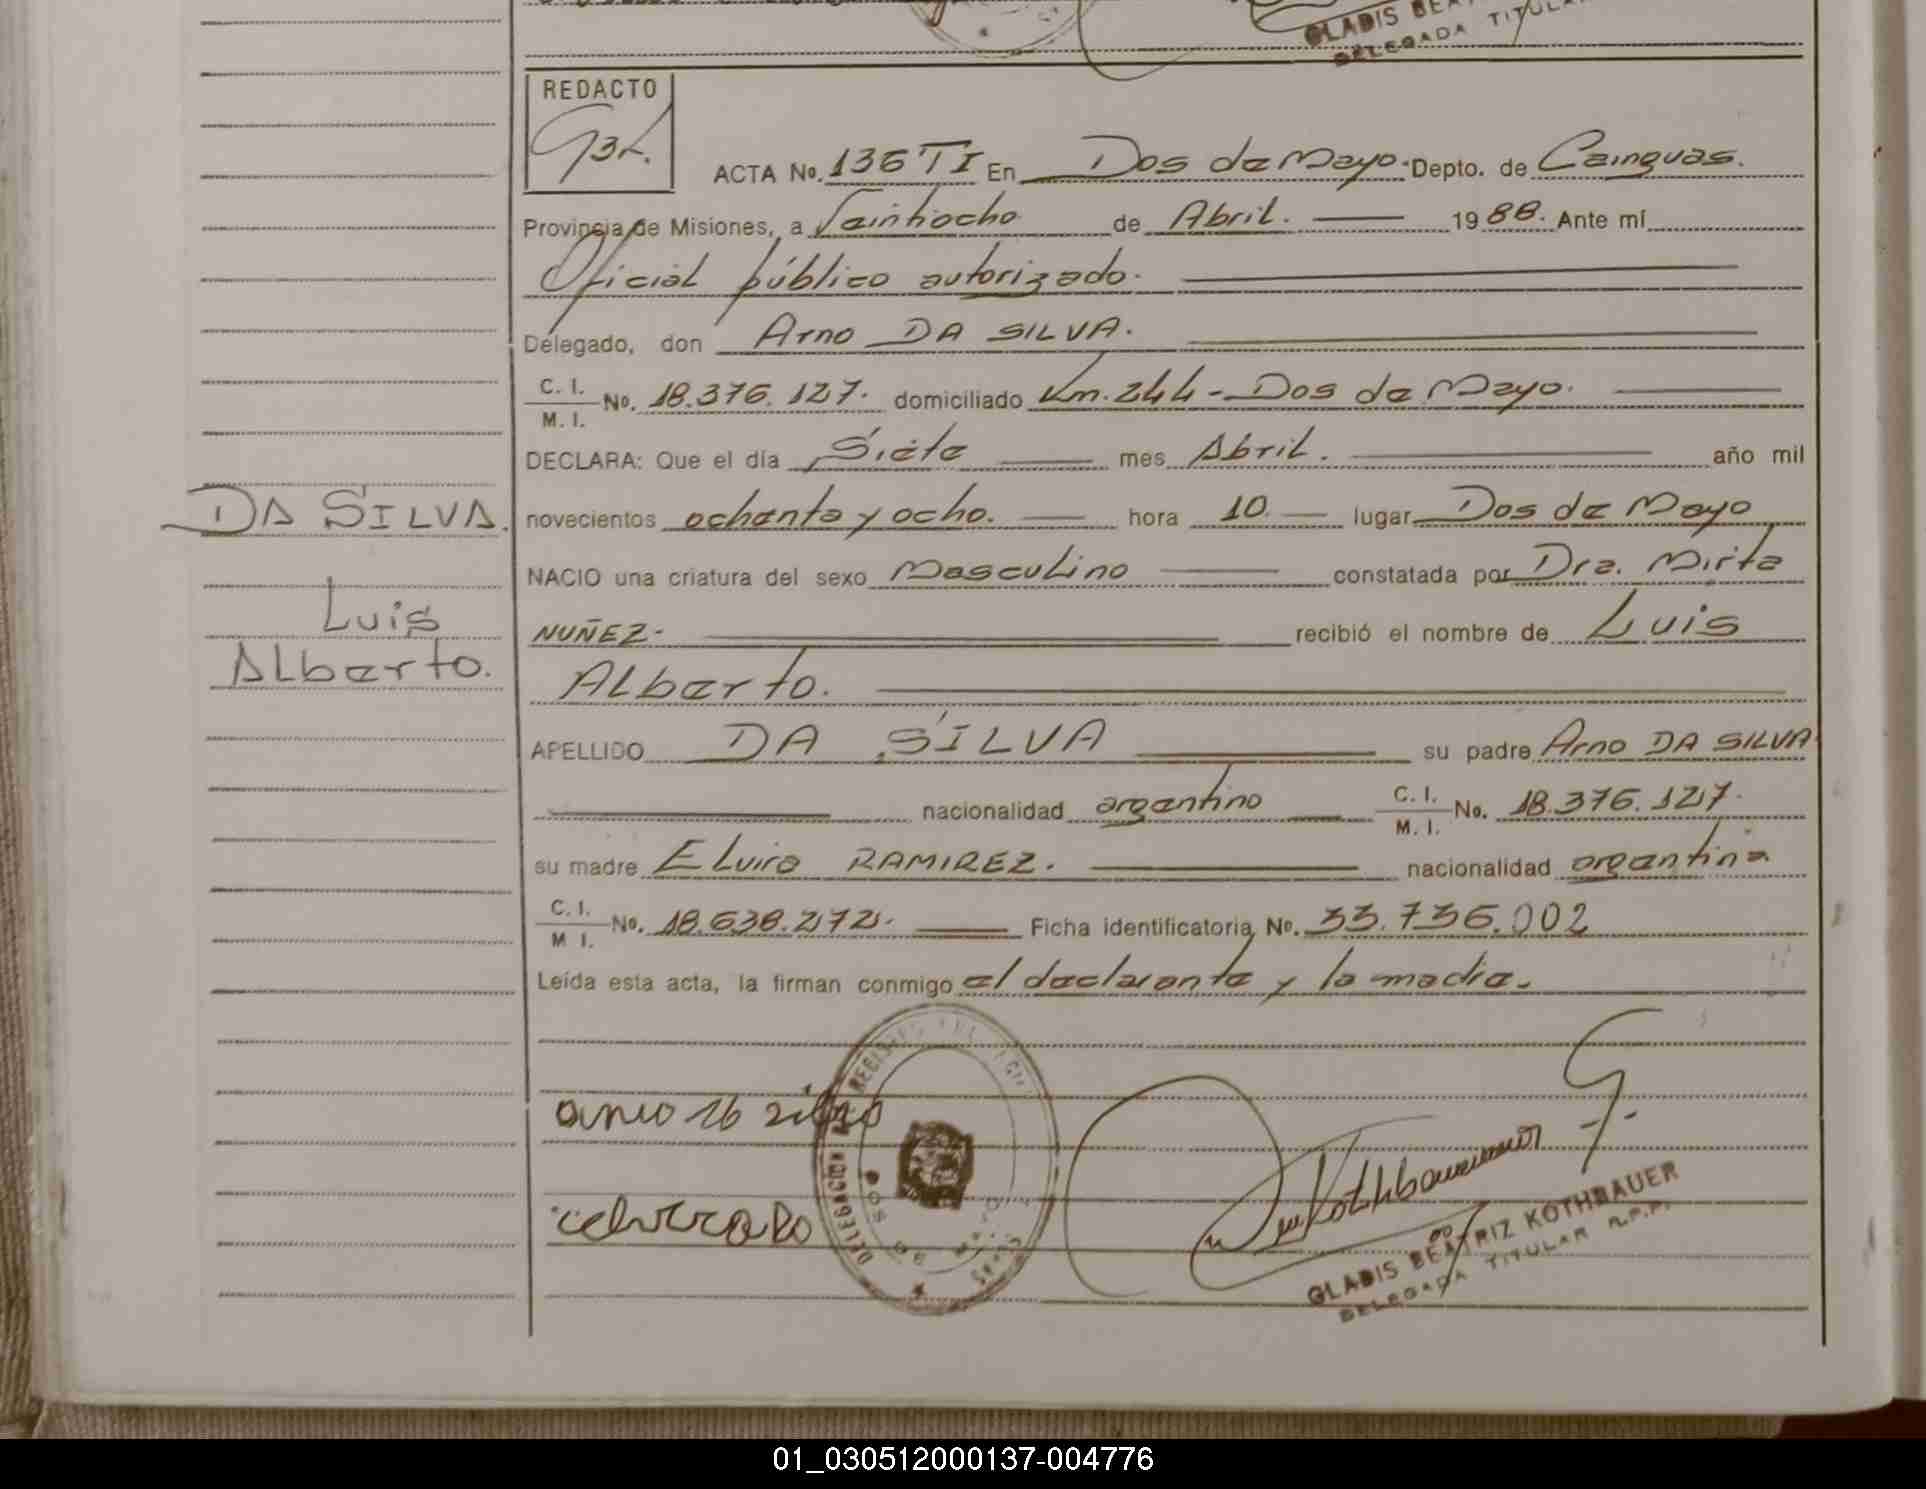 GLADIS BEA
DELEGADA TITULA
REDACTO
ACTA No. 136 TI En Dos de Mayo. Depto. de Cainguas.
Provincia de Misiones, a Veintiocho de Abril. 1988. Ante mí
Oficial público autorizado.
Delegado, don Arno DA SILVA.
C. I.
M. I. No. 18.376.127. domiciliado Km. 244 - Dos de Mayo.
DECLARA: Que el día Siete mes Abril. año mil
DA SILVA. novecientos ochenta y ocho. hora 10 lugar Dos de Mayo
NACIO una criatura del sexo Masculino constatada por Dra. Mirta
Luis NUÑEZ. recibió el nombre de Luis
Alberto. Alberto.
APELLIDO DA SILVA su padre Arno DA SILVA
nacionalidad argentino C. I. M. I. No. 18.376.127.
su madre Elvira RAMIREZ. nacionalidad argentina
C. I. M I. No. 18.638.272. Ficha identificatoria No. 33.736.002
Leída esta acta, la firman conmigo el declarante y la madre.
DELEGACION REGISTRO
DOS DE MAYO
Kothbauer
GLADIS BEATRIZ KOTHBAUER
DELEGADA TITULAR R.P.P.
01_030512000137-004776